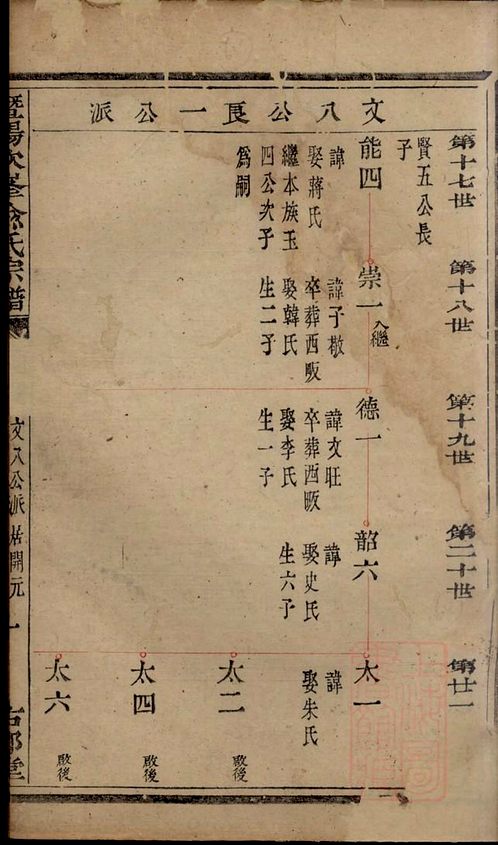 文八公良一公派
第十七世
第十八世
第十九世
第二十世
第廿一
賢五公長
子
能四
諱
娶蔣氏
繼本族玉
四公次子
為嗣
崇一
入繼
諱子敬
卒葬西畈
娶韓氏
生二子
德一
諱文旺
卒葬西畈
娶李氏
生一子
韶六
諱
娶史氏
生六子
太一
諱
娶朱氏
太二
敗後
太四
敗後
太六
敗後
暨陽次峯俞氏宗譜
文八公派居開元
一